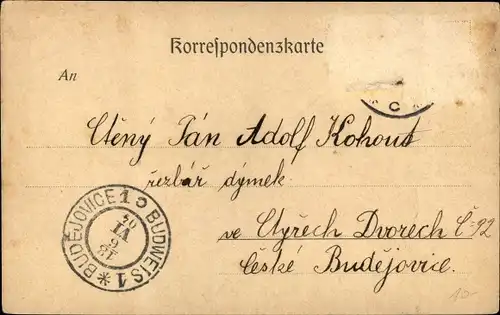 Korrespondenzkarte
An
Ctěný Pán Adolf Kohout
řezbář dýmek
ve Čtyřech Dvorech Č 92
České Budějovice.
* BUDĚJOVICE 1 c BUDWEIS 1
* C *